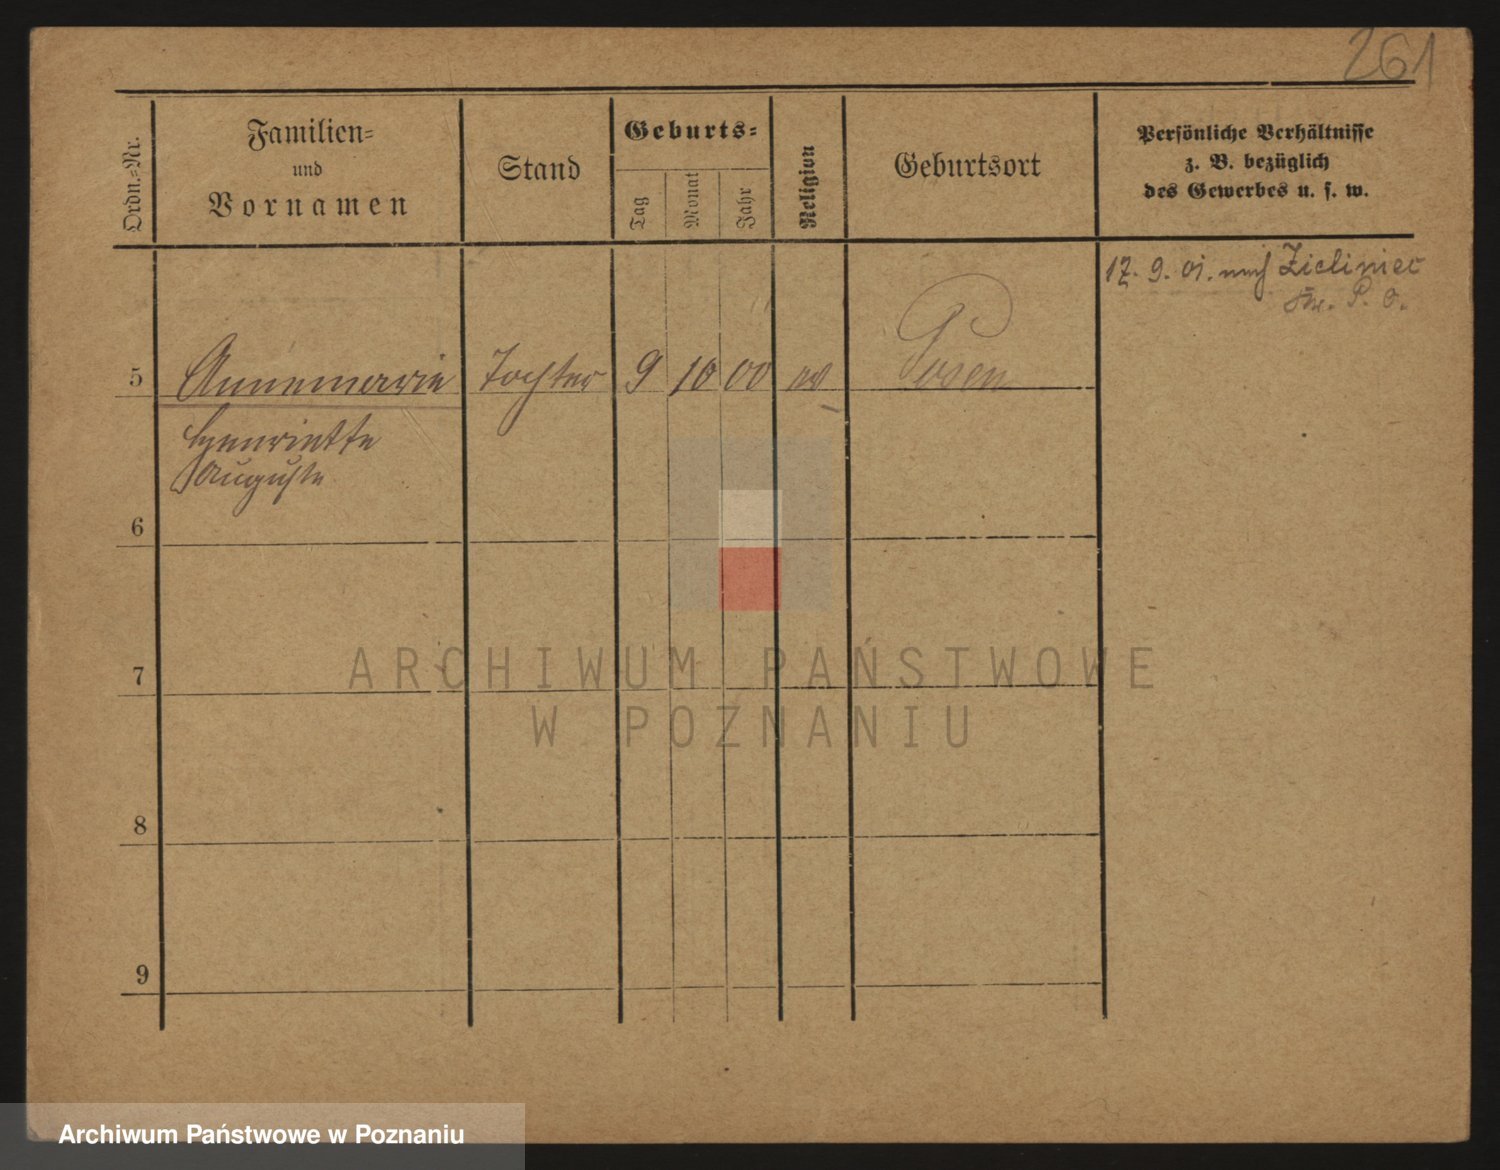 261
Ordn.-Nr.
Familien-
und
Vornamen
Stand
Geburts-
Tag
Monat
Jahr
Religion
Geburtsort
Persönliche Verhältnisse
z. B. bezüglich
des Gewerbes u. s. w.
17. 9. 01. nach Zieliniec
Kr. P. O.
5 Annemarie Tochter 9 10 00 ev Posen
Henriette
Auguste
6
7
8
9
ARCHIWUM PAŃSTWOWE
W POZNANIU
Archiwum Państwowe w Poznaniu